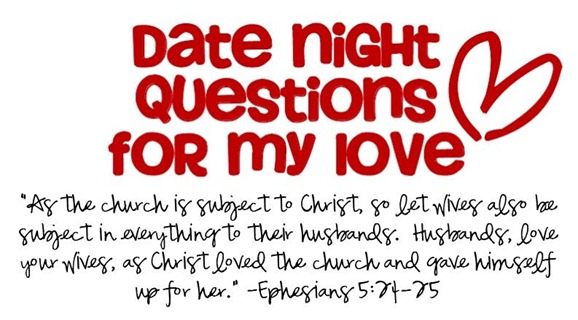 Date Night
Questions
for my love
"As the church is subject to Christ, so let wives also be
subject in everything to their husbands. Husbands, love
your wives, as Christ loved the church and gave himself
up for her." -Ephesians 5:24-25